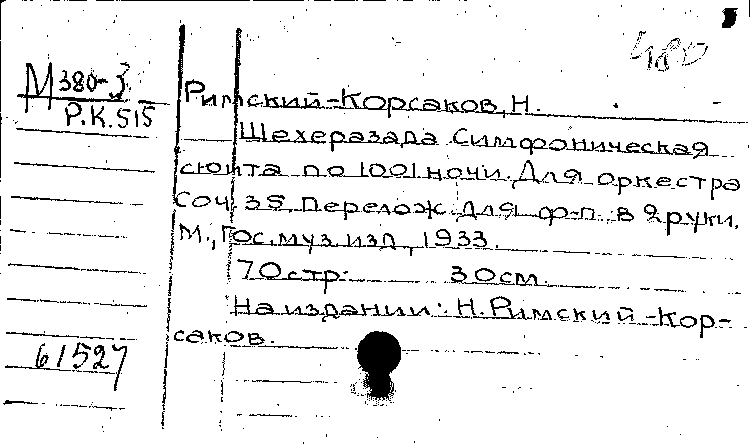 480
М380-3
Р.К.515
Римский-Корсаков, Н.
Шехеразада Симфоническая
сюита по 1001 ночи. Для оркестра
Соч. 35. Перелож. для ф-п. в 2 руки.
М., Гос. муз. изд., 1933.
70 стр. 30 см.
На издании: Н. Римский-Кор-
саков.
61527